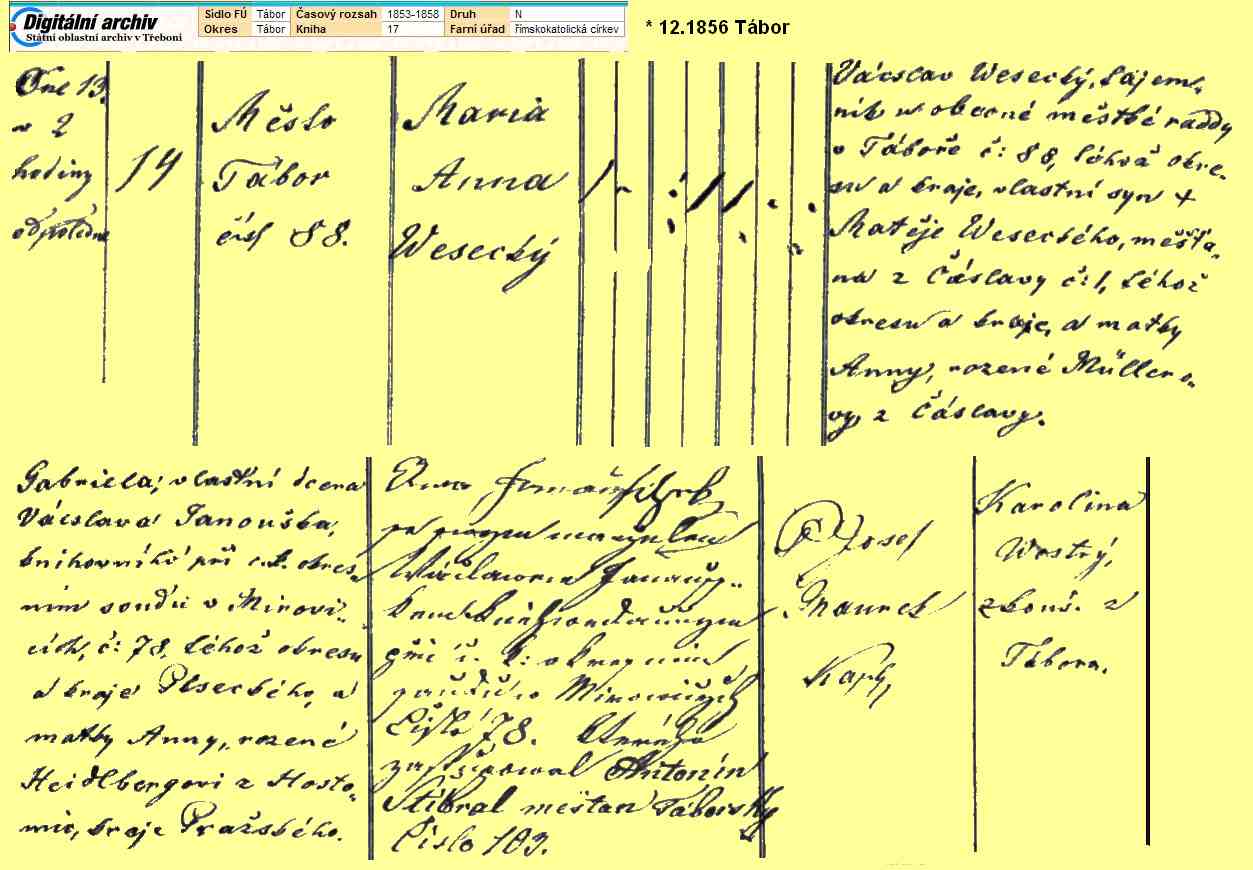 Digitální archiv
Státní oblastní archiv v Třeboni
Sídlo FÚ Tábor Časový rozsah 1853-1858 Druh N
Okres Tábor Kniha 17 Farní úřad římskokatolická církev
* 12.1856 Tábor
Dne 13.
w 2
hodiny
odpoledne
14
Město
Tábor
čísl 88.
Maria
Anna
Wesecký
Václav Wesecký, tajem-
ník w obecné městké raddy
v Táboře č: 88, téhož okre-
su a kraje, vlastní syn +
Matěje Weseckého, měšťa-
na z Čáslavy č: 1, téhož
okresu a kraje, a matky
Anny, rozené Müllero-
vy z Čáslavy.
Gabriela; vlastní dcera
Václava Janouška,
knihovníka při c.k. okres-
ním soudu v Mirovi-
cích, č: 78, téhož okresu
a kraje Píseckého, a
matky Anny, rozené
Heidlbergovi z Hosto-
mic, kraje Pražského.
Mirowických
Číslo 78.
zastupowal Antonín
Stibral meštan Táborský
Číslo 103.
Josef
Maurek
Kapl,
Karolina
Westrý,
zkouš. z
Tábora.